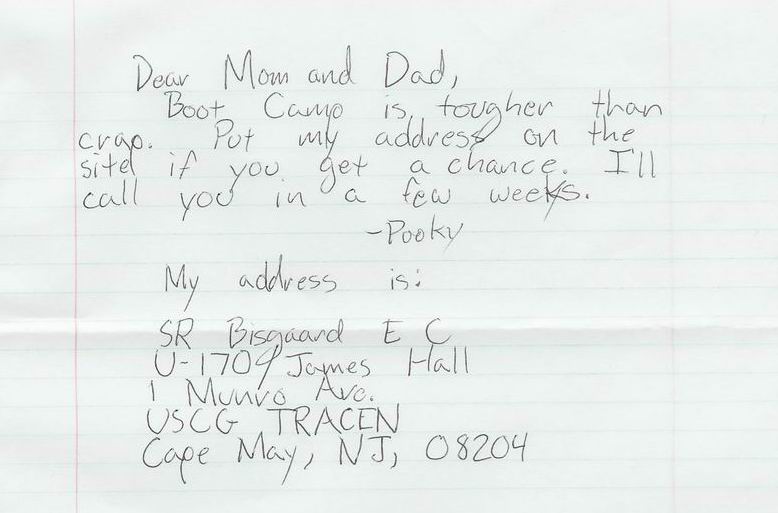 Dear Mom and Dad,
Boot Camp is tougher than
crap. Put my address on the
site if you get a chance. I'll
call you in a few weeks.
-Pooky
My address is:
SR Bisgaard E C
U-1709 James Hall
1 Munro Ave.
USCG TRACEN
Cape May, NJ, 08204